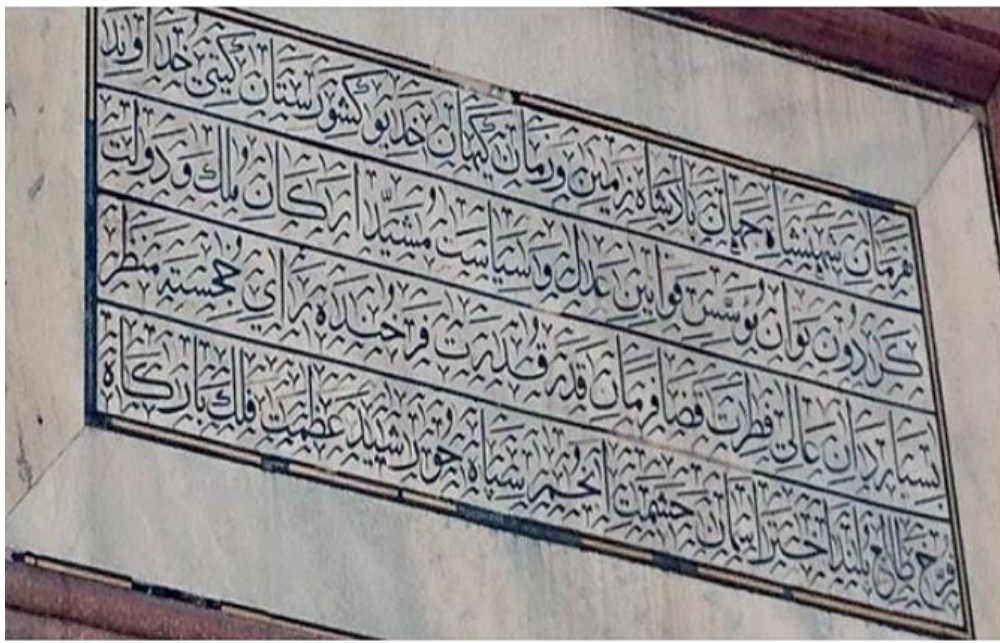 بفرمان شهنشاه جهان پادشاه زمین و زمان گیهان خدیو کشورستان گیتی خداوند
گردون توان مؤسس قوانین عدل و سیاست مشید ارکان ملک و دولت
بسیاردان عالی فطرت قضا فرمان قدر قدرت فرخنده رای خجسته منظر
فرخ طالع بلند اختر آسمان حشمت انجم سپاه خورشید عظمت فلک بارگاه